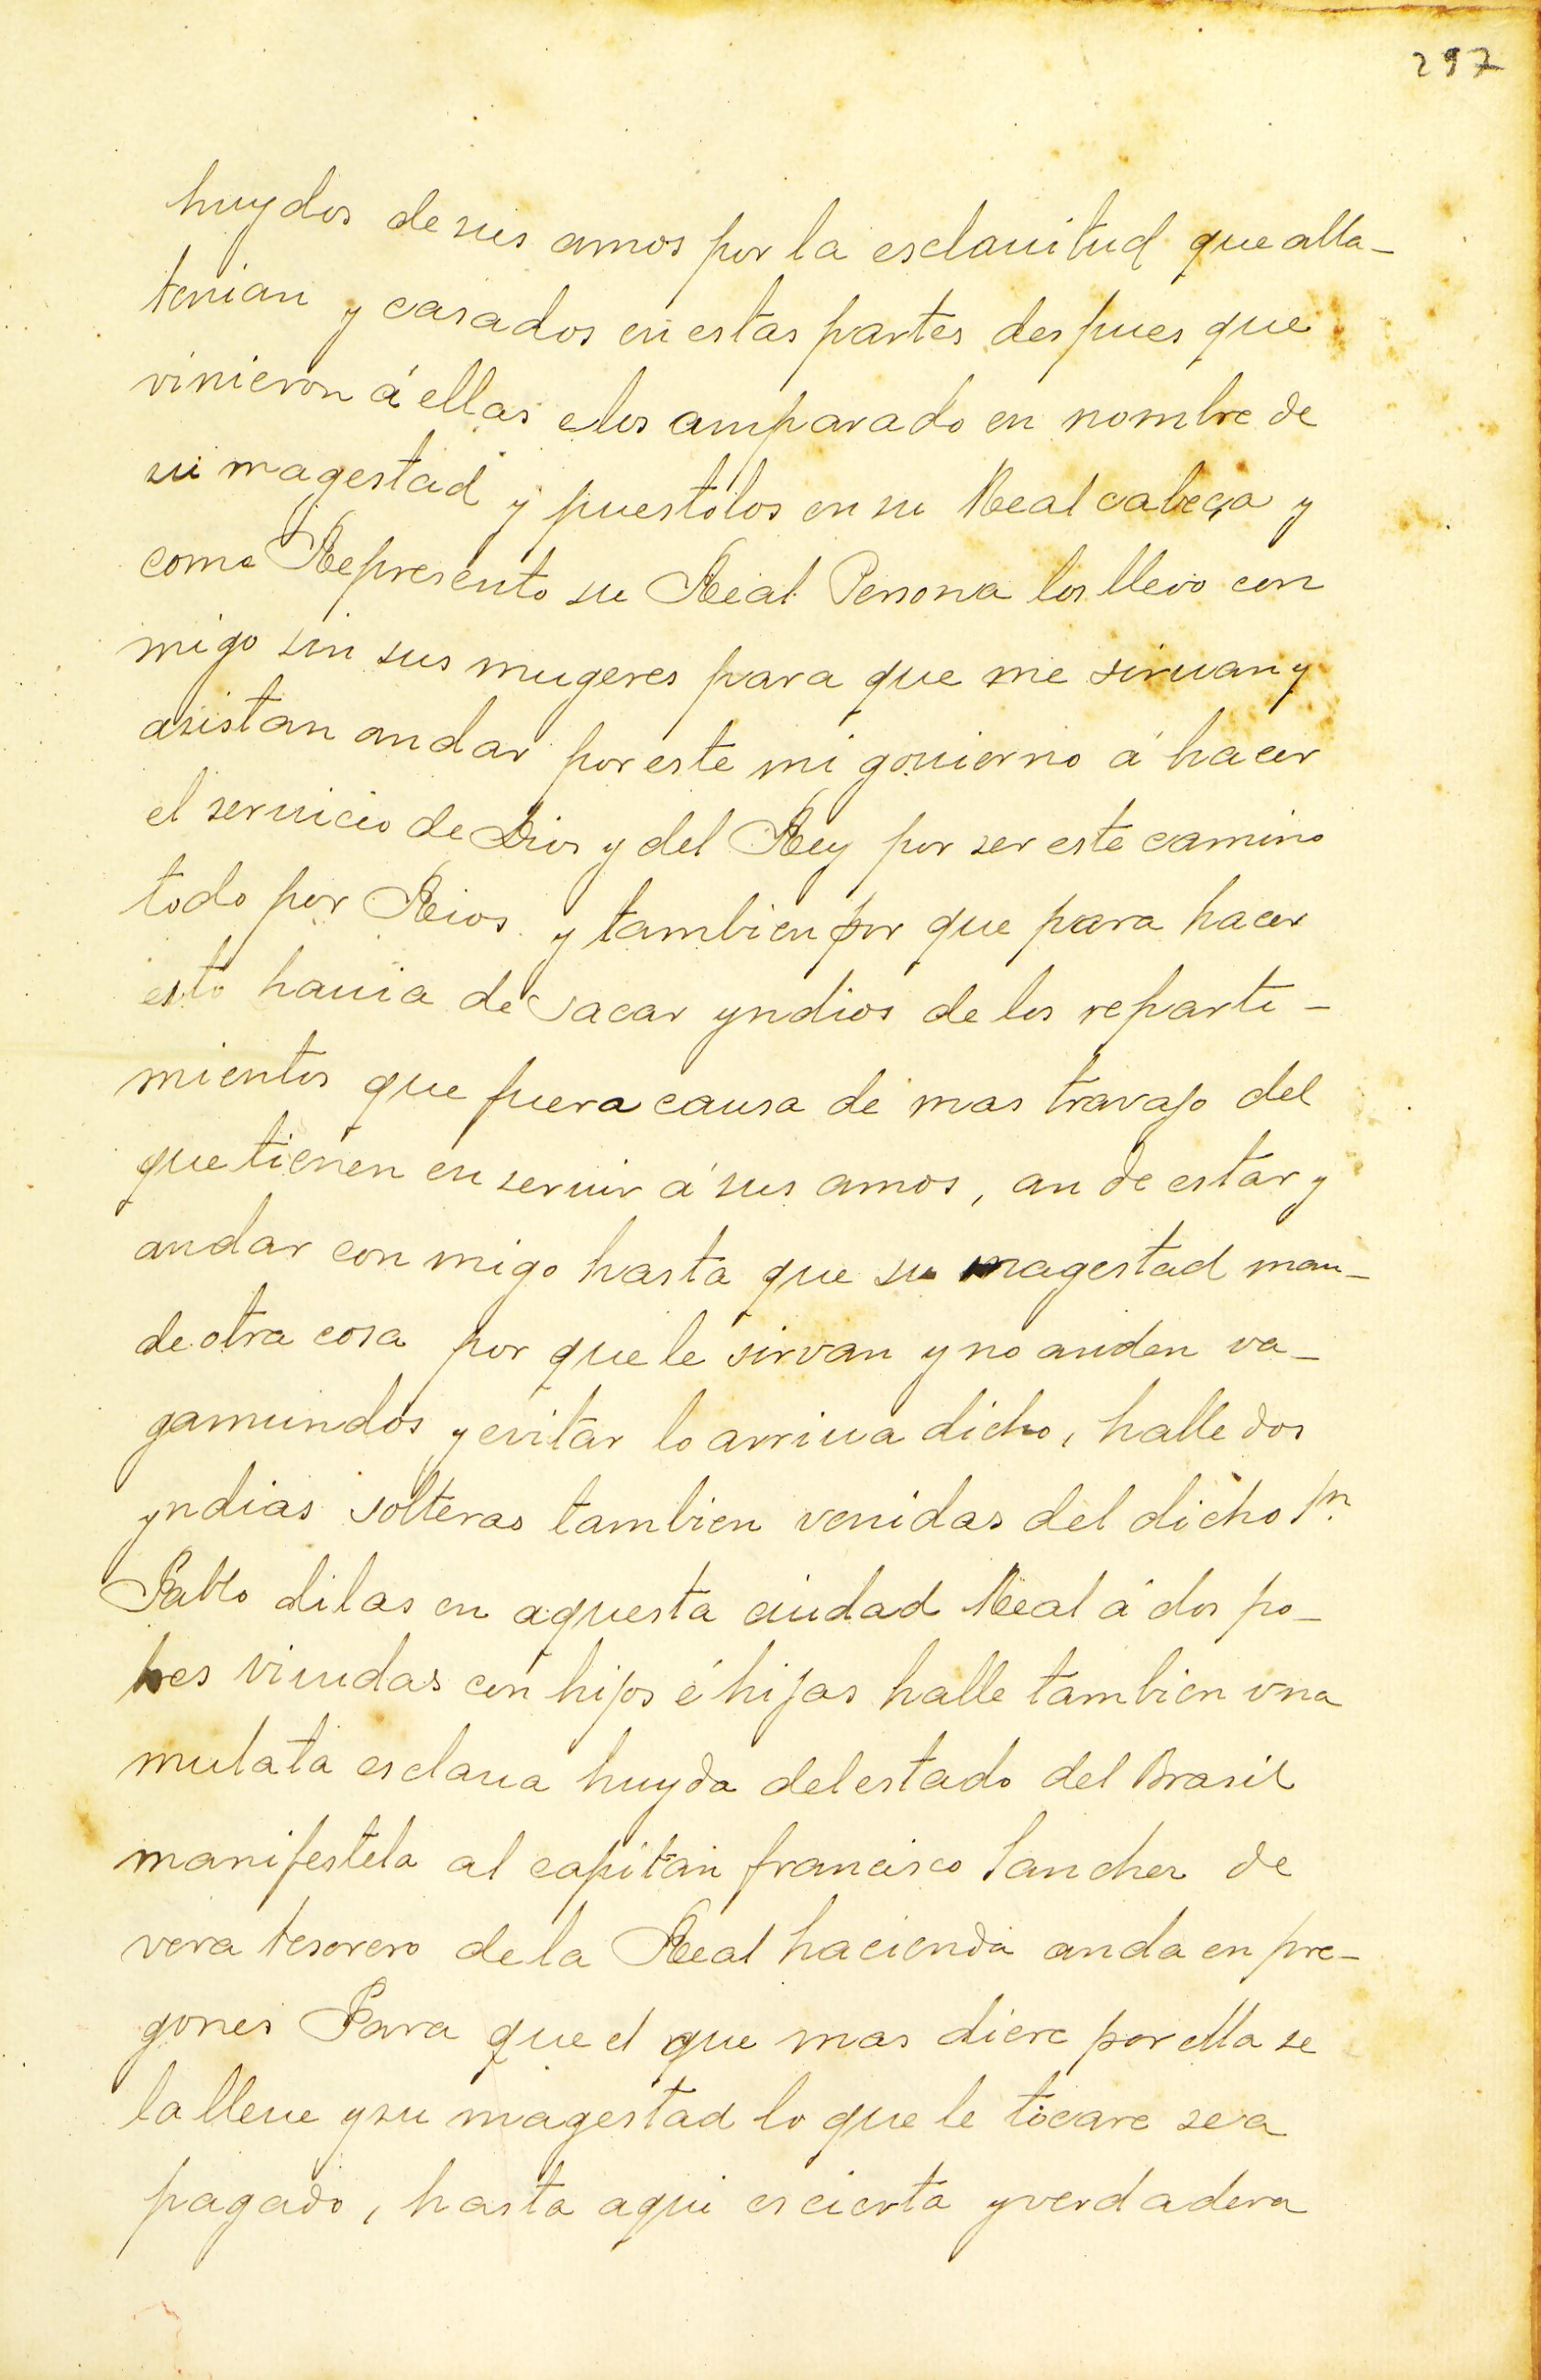 297
huydos de sus amos por la esclauitud que alla-
tenian y casados en estas partes despues que
vinieron á ellas elos amparado en nombre de
su magestad y puestolos en su Real cabeça y
como Represento su Real Persona los llevo con
migo sin sus mugeres para que me siruan y
asistan andar por este mi gouierno á hacer
el seruicio de Dios y del Rey por ser este camino
todo por Rios y tambien por que para hacer
esto hauia de sacar yndios de los reparti-
mientos que fuera causa de mas travajo del
que tienen en seruir á sus amos, an de estar y
andar con migo hasta que su magestad man-
de otra cosa por que le sirvan y no anden va-
gamundos y evitar lo arriua dicho, halle dos
yndias solteras tambien venidas del dicho Sn.
Pablo dilas en aquesta ciudad Real á dos po-
bres viudas con hijos é hijas halle tambien vna
mulata esclaua huyda del estado del Brasil
manifestela al capitan francisco Sanchez de
vera tesorero de la Real hacienda anda en pre-
gones Para que el que mas diere por ella se
la lleue y su magestad lo que le tocare sea
pagado, hasta aqui es cierta y verdadera